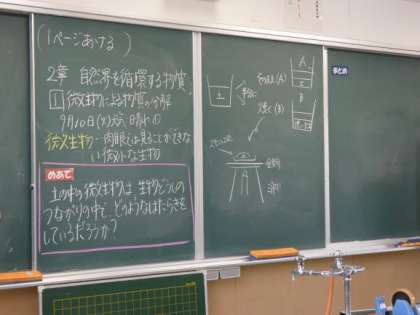 (1ページあける)
2章 自然界を循環する物質
1 微生物による物質の分解
9月10日(火)天気 晴れ
微生物…肉眼では見ることができない
い微小な生物
めあて
土の中の微生物は、生物どうしの
つながりの中で、どのようなはたらきを
しているだろうか?
土
そのまま(A)
焼く(B)
A
B
土
金網
まとめ